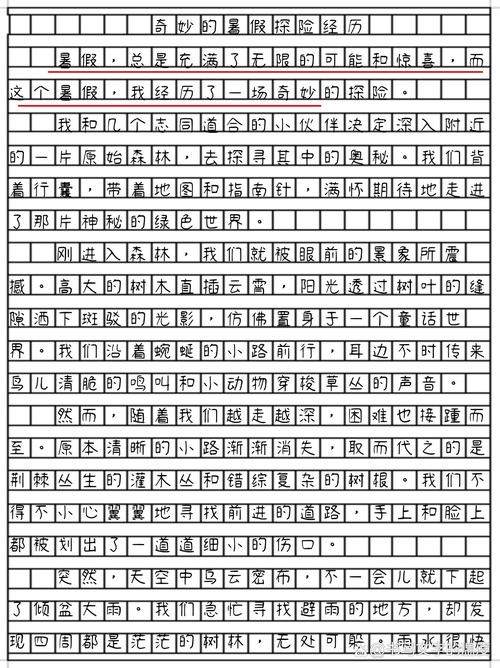 奇妙的暑假探险经历
暑假，总是充满了无限的可能和惊喜，而
这个暑假，我经历了一场奇妙的探险。
我和几个志同道合的小伙伴决定深入附近
的一片原始森林，去探寻其中的奥秘。我们背
着行囊，带着地图和指南针，满怀期待地走进
了那片神秘的绿色世界。
刚进入森林，我们就被眼前的景象所震
撼。高大的树木直插云霄，阳光透过树叶的缝
隙洒下斑驳的光影，仿佛置身于一个童话世
界。我们沿着蜿蜒的小路前行，耳边不时传来
鸟儿清脆的鸣叫和小动物穿梭草丛的声音。
然而，随着我们越走越深，困难也接踵而
至。原本清晰的小路渐渐消失，取而代之的是
荆棘丛生的灌木丛和错综复杂的树根。我们不
得不小心翼翼地寻找前进的道路，手上和脸上
都被划出了一道道细小的伤口。
突然，天空中乌云密布，不一会儿就下起
了倾盆大雨。我们急忙寻找避雨的地方，却发
现四周都是茫茫的树林，无处可躲。雨水很快